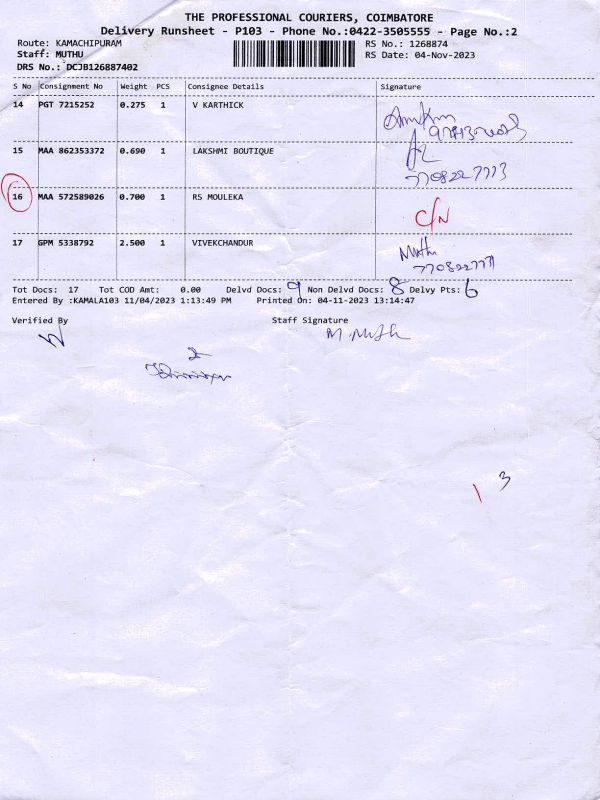 THE PROFESSIONAL COURIERS, COIMBATORE
Delivery Runsheet - P103 - Phone No.:0422-3505555 - Page No.:2
Route: KAMACHIPURAM RS No.: 1268874
Staff: MUTHU RS Date: 04-Nov-2023
DRS No.: DCJB126887402
S No Consignment No Weight PCS Consignee Details Signature
14 PGT 7215252 0.275 1 V KARTHICK
15 MAA 862353372 0.690 1 LAKSHMI BOUTIQUE
7708227773
16 MAA 572589026 0.700 1 RS MOULEKA C/N
17 GPM 5338792 2.500 1 VIVEKCHANDUR Muthu
Tot Docs: 17 Tot COD Amt: 0.00 Delvd Docs: 9 Non Delvd Docs: 8 Delvy Pts: 6
Entered By :KAMALA103 11/04/2023 1:13:49 PM Printed On: 04-11-2023 13:14:47
Verified By Staff Signature
M. Muth
1 3